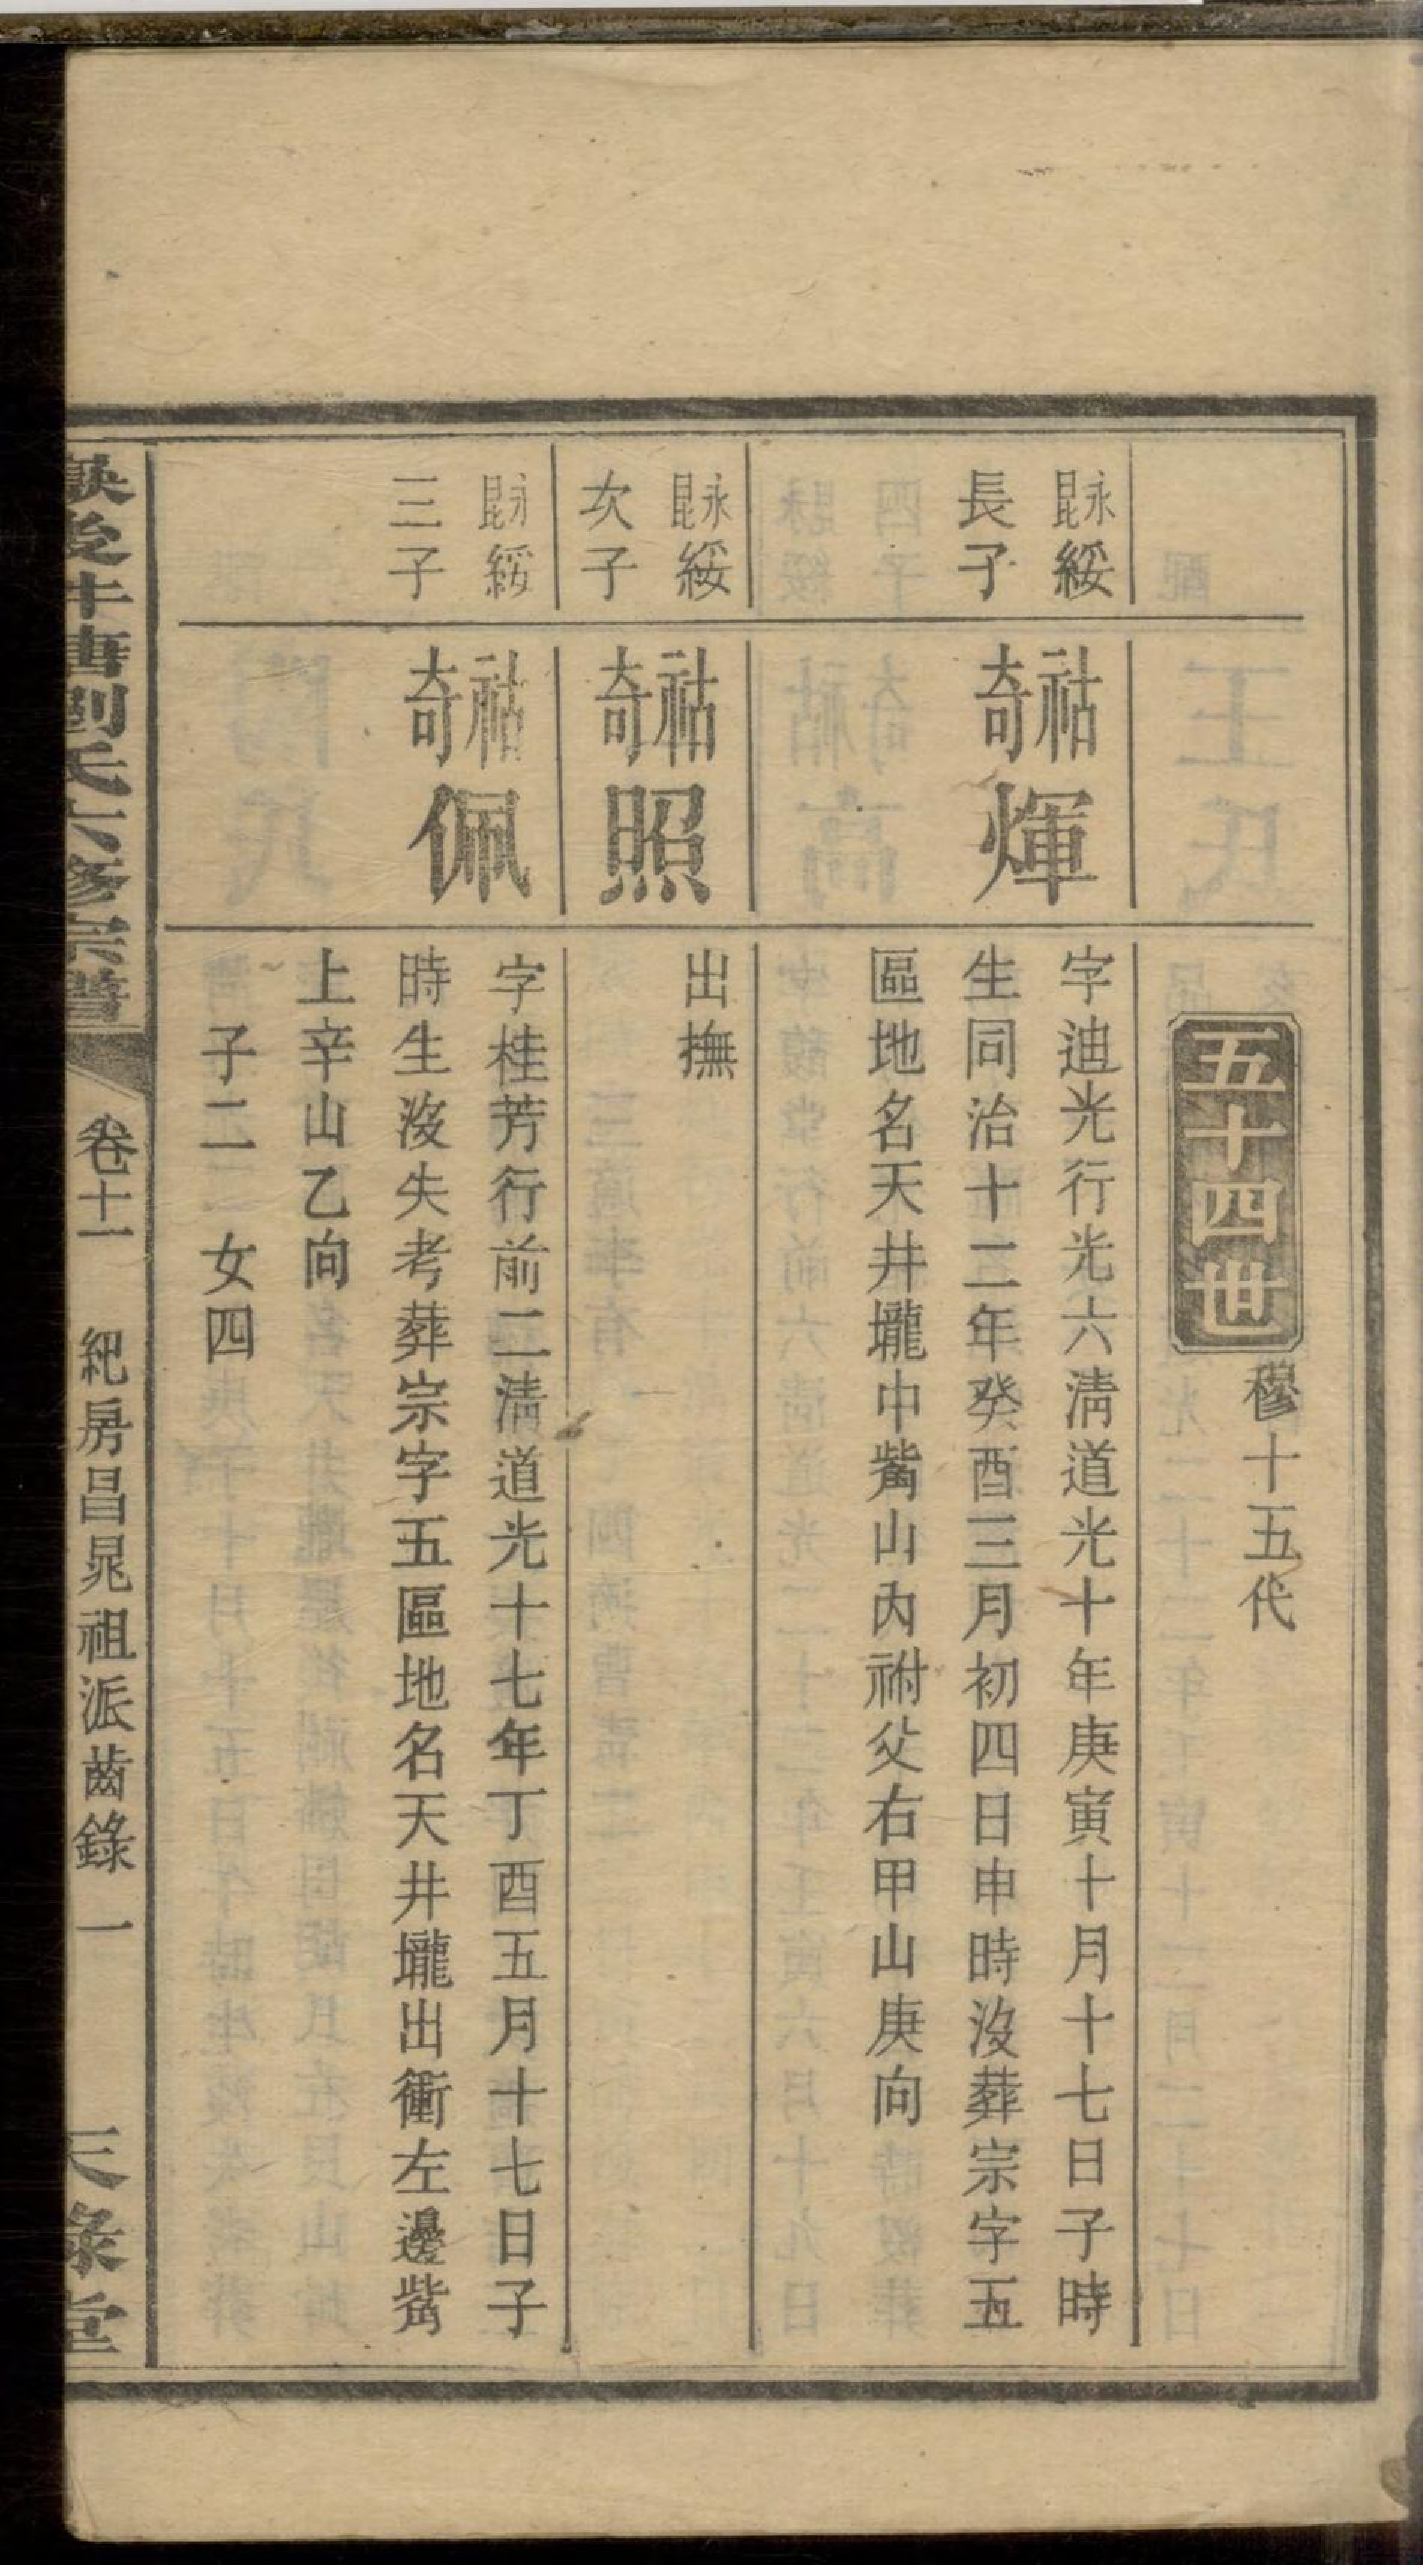 五十四世
穆十五代
永綏
昆長子
祜煇
奇
字迪光行光六淸道光十年庚寅十月十七日子時
生同治十二年癸酉三月初四日申時沒葬宗字五
區地名天井壠中觜山內祔父右甲山庚向
永綏
昆次子
祜照
奇
出撫
永綏
昆三子
祜佩
奇
字桂芳行前二淸道光十七年丁酉五月十七日子
時生沒失考葬宗字五區地名天井壠出衝左邊觜
上辛山乙向
子二 女四
後牛塘劉氏六修宗譜
卷十一
紀房昌晁祖派齒錄 一
天祿堂